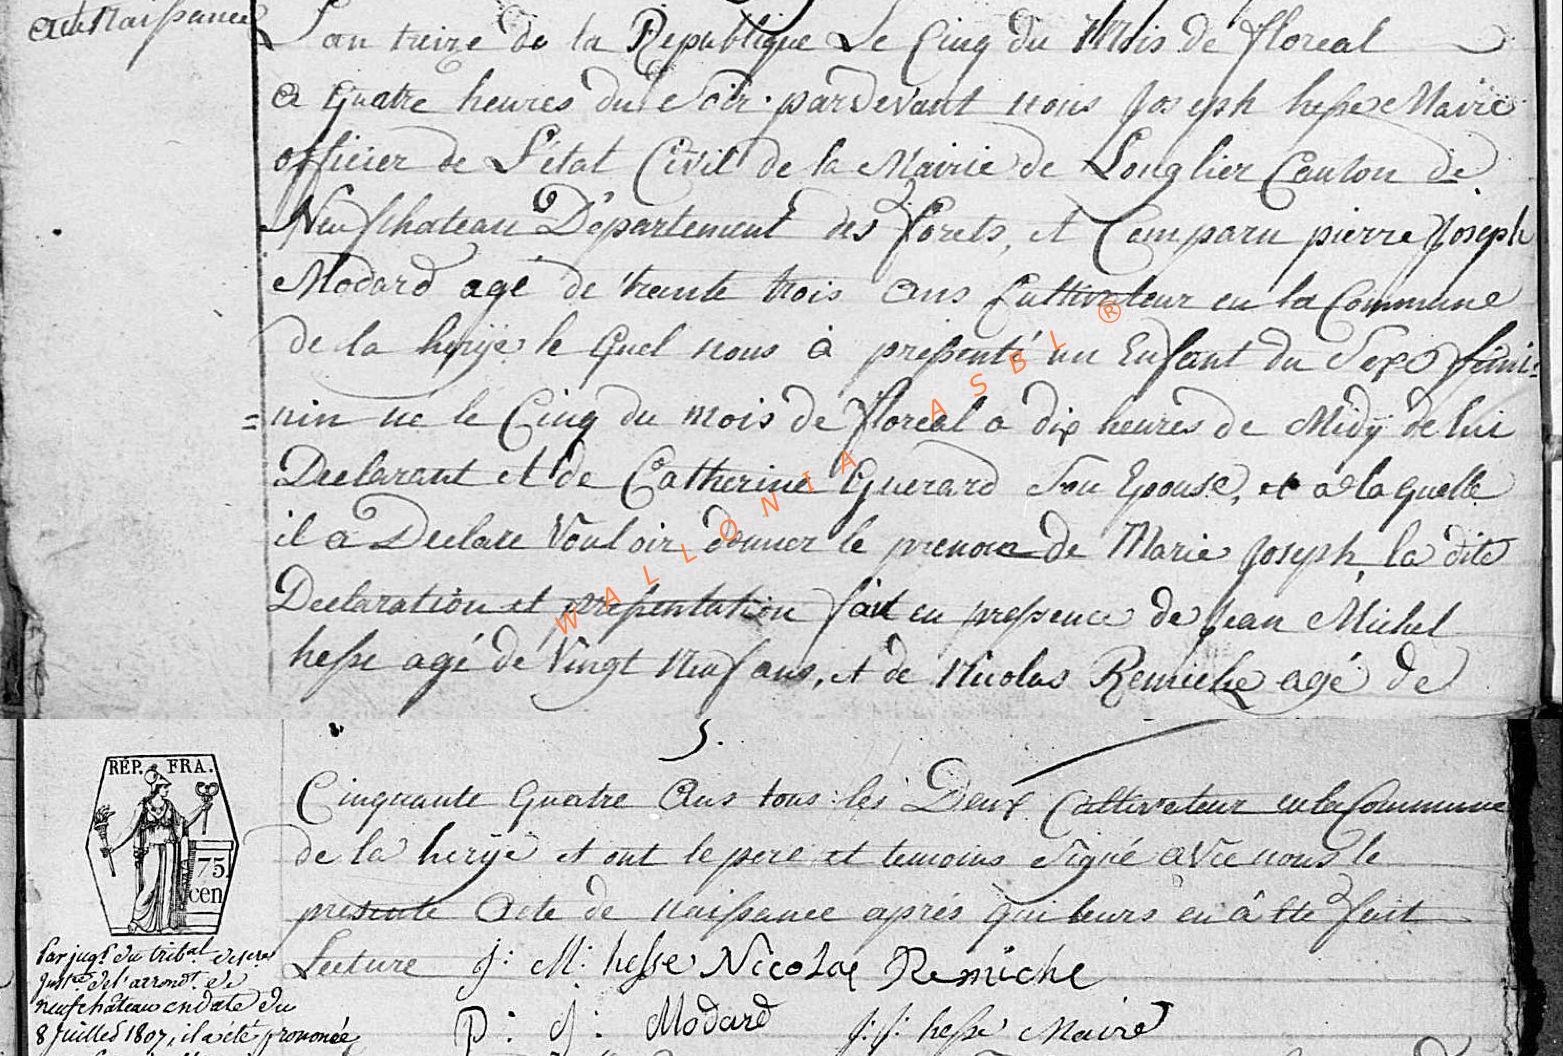 acte Naissance
L'an treize de la Republique Le Cinq du Mois de floreal
a quatre heures du Soir pardevant nous Joseph hesse Maire
officier de L'état Civil de la Mairie de Longlier Canton de
Neufchateau Département des forets, et Comparu pierre Joseph
Modard agé de trente trois ans Cultivateur en la Commune
de la herÿe le quel nous à presenté un Enfant du Sexe femi=
=nin né le Cinq du mois de floreal a dix heures de Midÿ de lui
Declarant et de Catherine Guerard Son Epouse, et a la quelle
il a Declare Vouloir donner le prenom de Marie Joseph, la dite
Declaration et presentation fait en pressence de Jean Michel
hesse agé de Vingt neuf ans, et de Nicolas Remiche agé de
5.
Cinquante quatre ans tous les Deux Cultivateur en la Commune
de la herÿe et ont le pere et temoins Signé avec nous le
presente acte de naissance aprés qui leurs en à été fait
Lecture J: M: hesse Nicolae Remiche
P: J: Modard J: J: hesse Maire
RÉP. FRA.
75
cen
Par jugt. du tribal. de
Justce. de l'arrondt. de
neufchâteau en date du
8 juillet 1807, il a été prononcé
WALLONIA ASBL ®